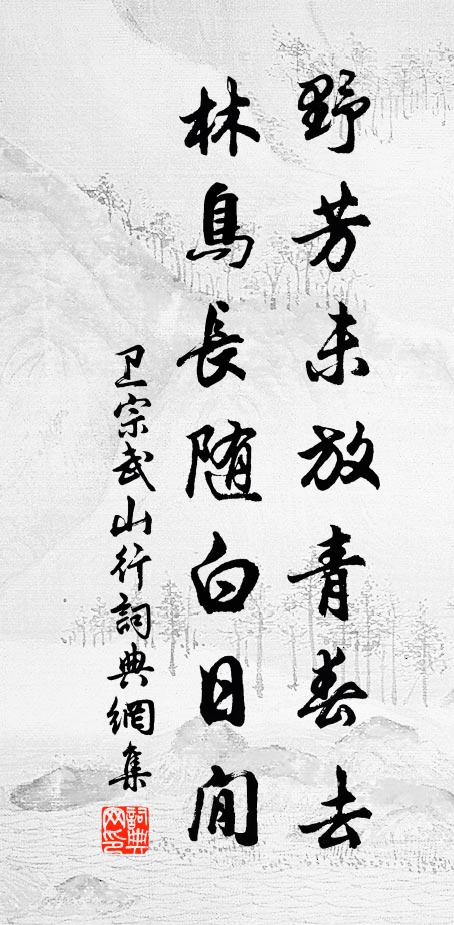 野芳未放青春去
林鳥長随白日闲
卫宗武山行詞典網集
詞典网印